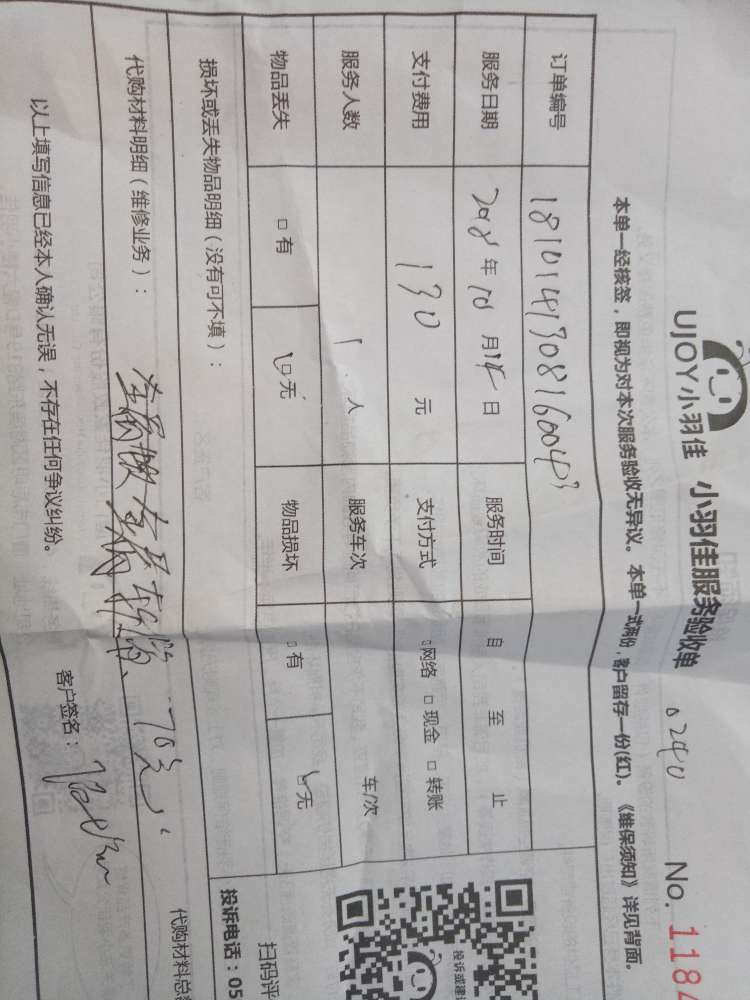 UJOY小羽佳 小羽佳服务验收单 0240 No. 1184
本单一经核签，即视为对本次服务验收无异议。本单一式两份，客户留存一份(红)。《维保须知》详见背面。
订单编号 1810141308160043
服务日期 2018年10月14日 服务时间 自 至 止
支付费用 130元 支付方式 □网络 □现金 □转账
服务人数 1人 服务车次 车/次
物品丢失 □有 □无 物品损坏 □有 □无
损坏或丢失物品明细（没有可不填）：
投诉或建议
扫码评
投诉电话：05
代购材料明细（维修业务）：
70元
代购材料总
以上填写信息已经本人确认无误，不存在任何争议纠纷。
客户签名：